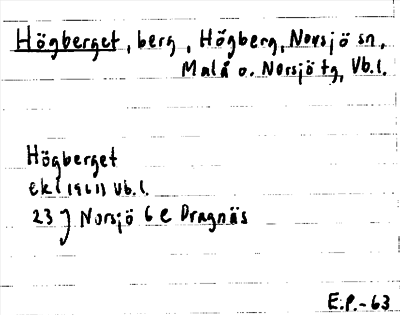 Högberget, berg, Högberg, Norsjö sn,
Malå o. Norsjö tg, Vb.l.
Högberget
ek (1961) Vb.l.
23 J Norsjö 6 e Dragnäs
E.P.-63